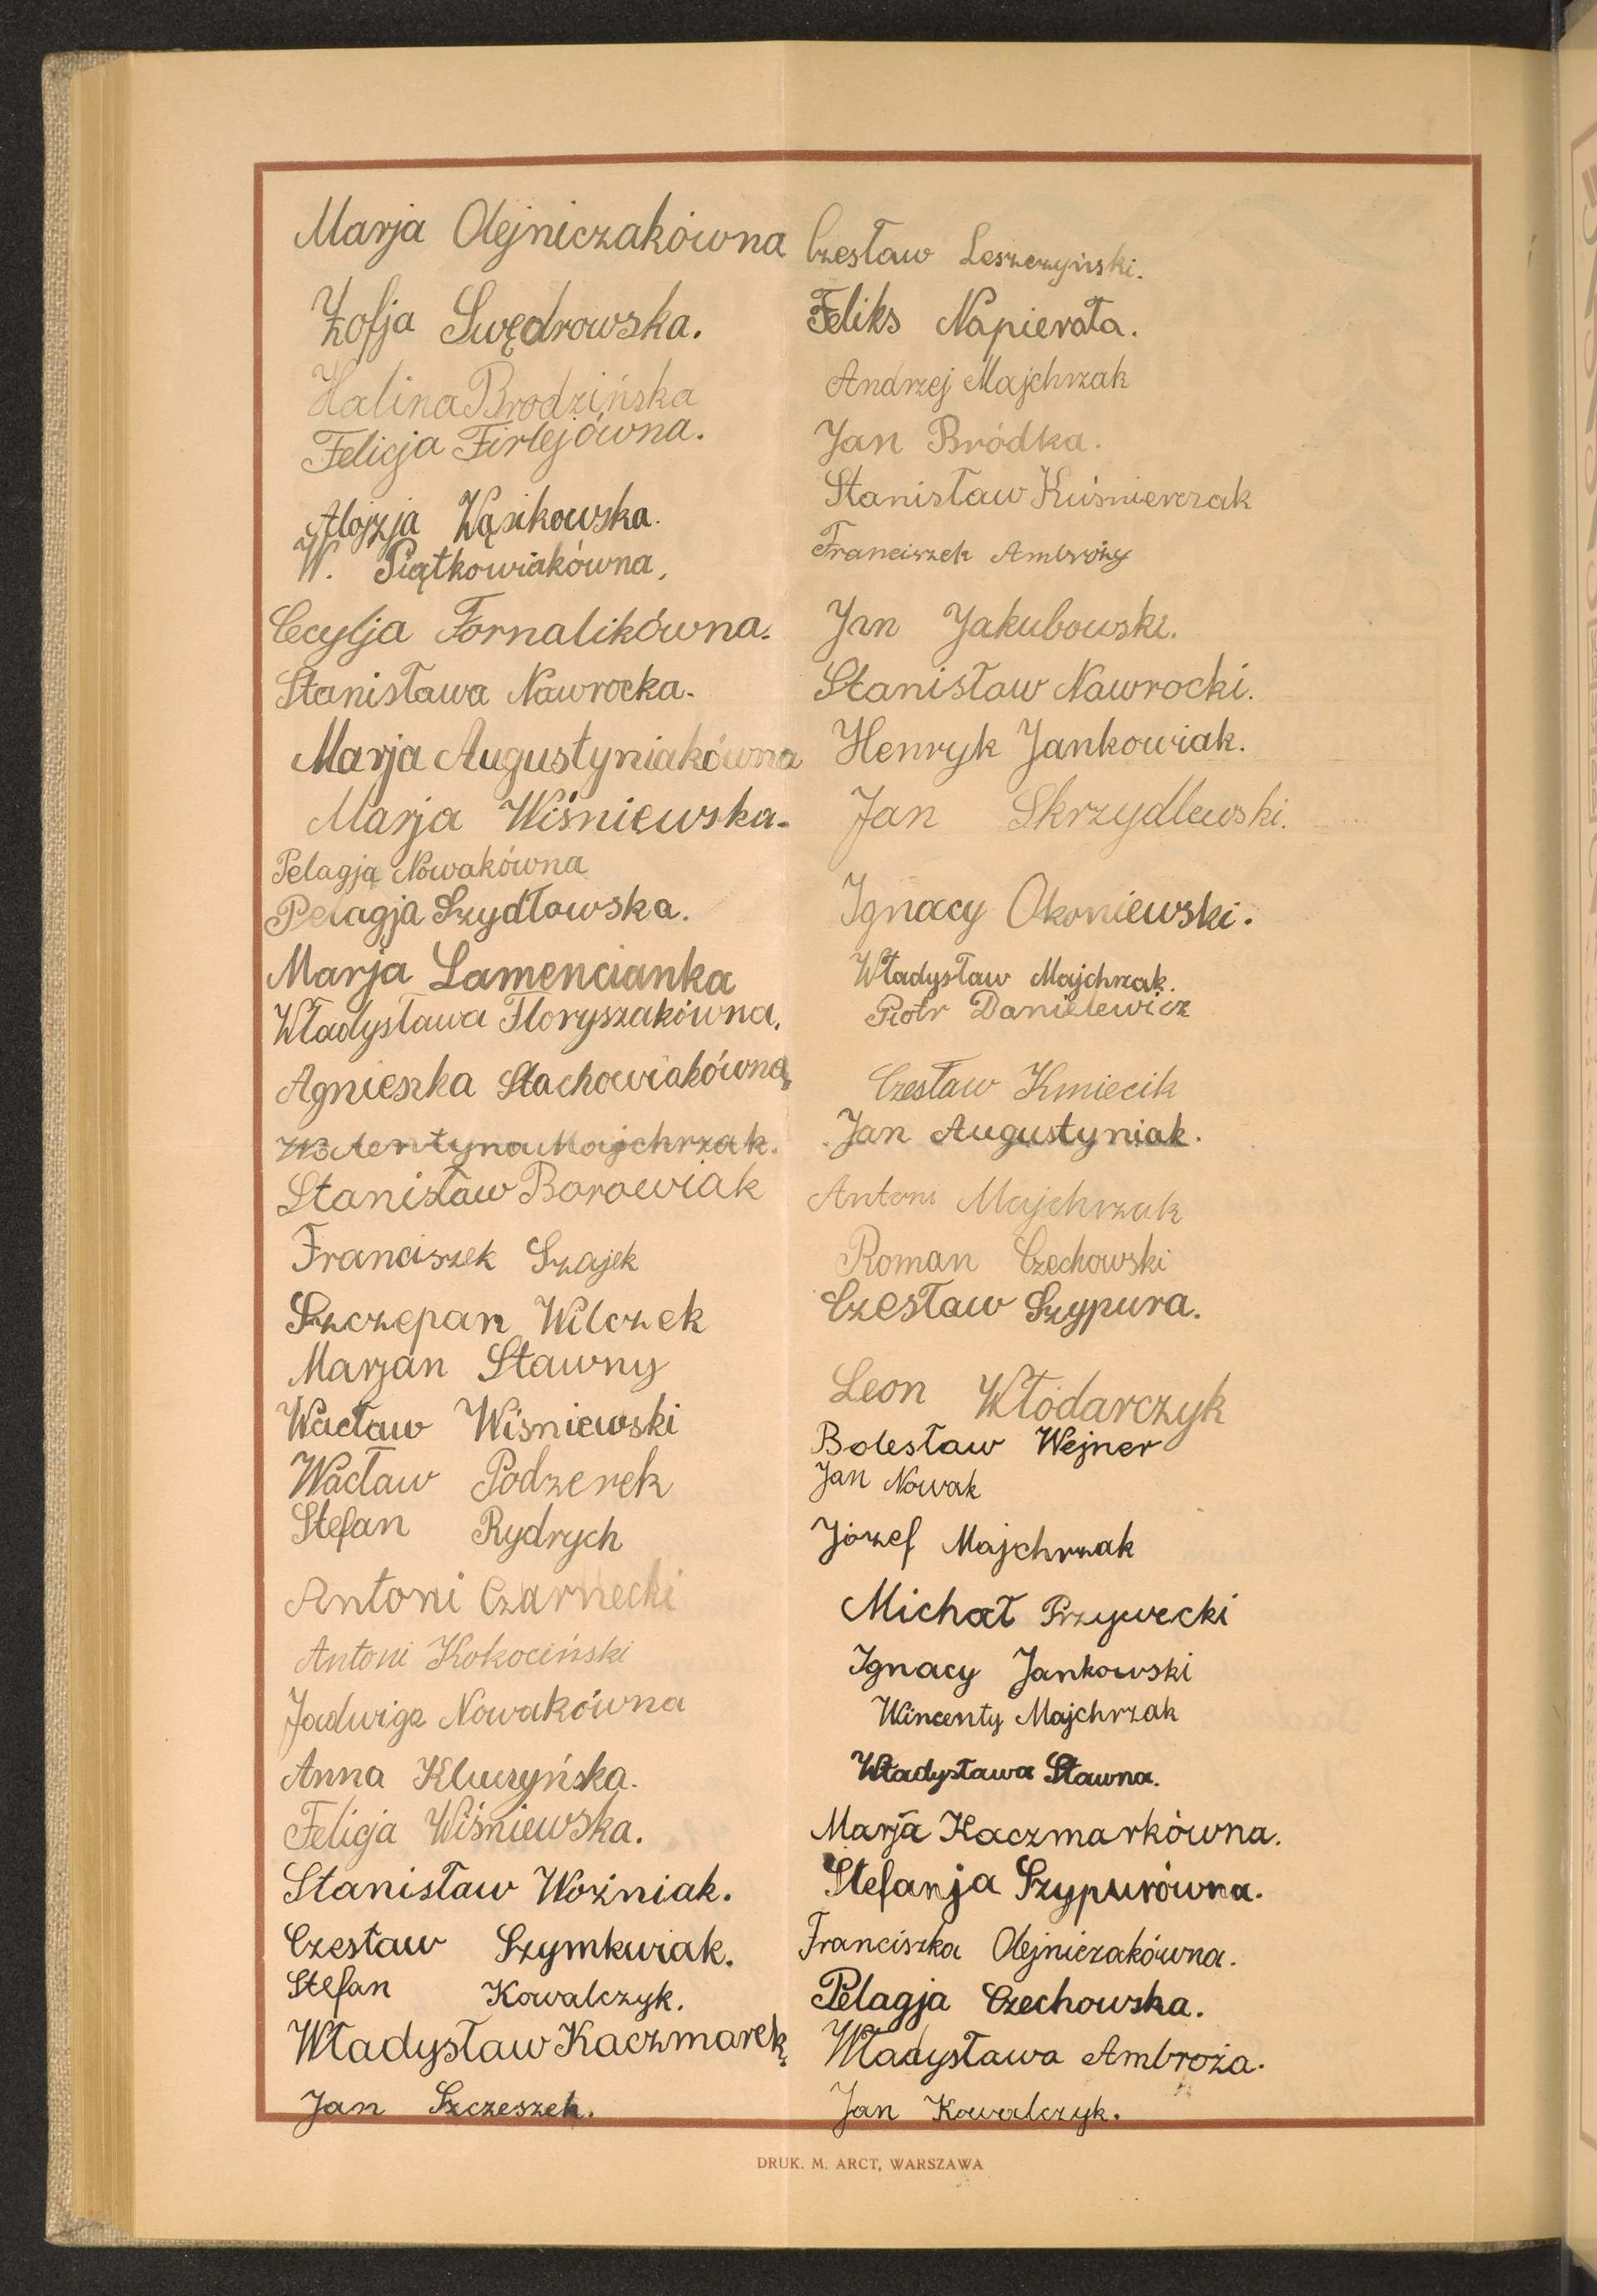 Marja Olejniczakówna
Zofja Swędrowska.
Halina Brodzińska
Felicja Firlejówna.
Alojzja Wąsikowska.
W. Piątkowiakówna,
Cecylja Fornalikówna.
Stanisława Nawrocka.
Marja Augustyniakówna
Marja Wiśniewska.
Pelagja Nowakówna
Pelagja Szydłowska.
Marja Lamencianka
Władysława Floryszakówna,
Agnieszka Stachowiakówna,
Majchrzak.
Stanisław Borowiak
Franciszek Szajek
Szczepan Wilczek
Marjan Sławny
Wacław Wiśniewski
Wacław Podzerek
Stefan Rydrych
Antoni Czarnecki
Antoni Kokociński
Jadwiga Nowakówna
Anna Kluczyńska.
Felicja Wiśniewska.
Stanisław Woźniak.
Czesław Szymkwiak.
Stefan Kowalczyk.
Władysław Kaczmarek,
Jan Szczeszek.
Czesław Leszczyński.
Feliks Napierała.
Andrzej Majchrzak
Jan Bródka.
Stanisław Kuśnierczak
Franciszek Ambroży
Jan Jakubowski.
Stanisław Nawrocki.
Henryk Jankowiak.
Jan Skrzydlewski.
Ignacy Okoniewski.
Władysław Majchrzak.
Piotr Danielewicz
Czesław Kmiecik
Jan Augustyniak.
Antoni Majchrzak
Roman Czechowski
Czesław Szypura.
Leon Włodarczyk
Bolesław Wejner
Jan Nowak
Józef Majchrzak
Michał Przywecki
Ignacy Jankowski
Wincenty Majchrzak
Władysława Sławna.
Marja Kaczmarkówna.
Stefanja Szypurówna.
Franciszka Olejniczakówna.
Pelagja Czechowska.
Władysława Ambroża.
Jan Kowalczyk.
DRUK. M. ARCT, WARSZAWA